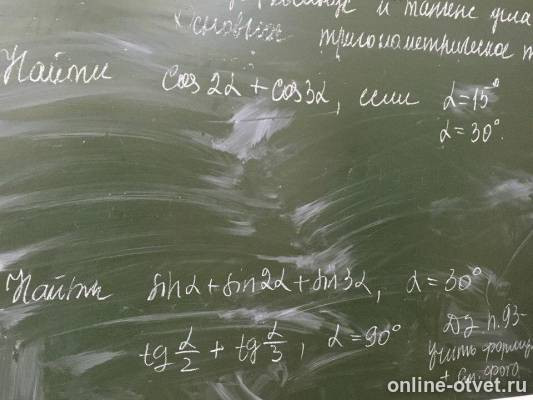 и тангенс угла
Основное тригонометрическое т
Найти cos 2α + cos 3α, если α = 15°
α = 30°.
Найти sin α + sin 2α + sin 3α, α = 30°
tg α/2 + tg α/3, α = 90°
Дз п. 93-
учить форму
+ см. фото
online-otvet.ru